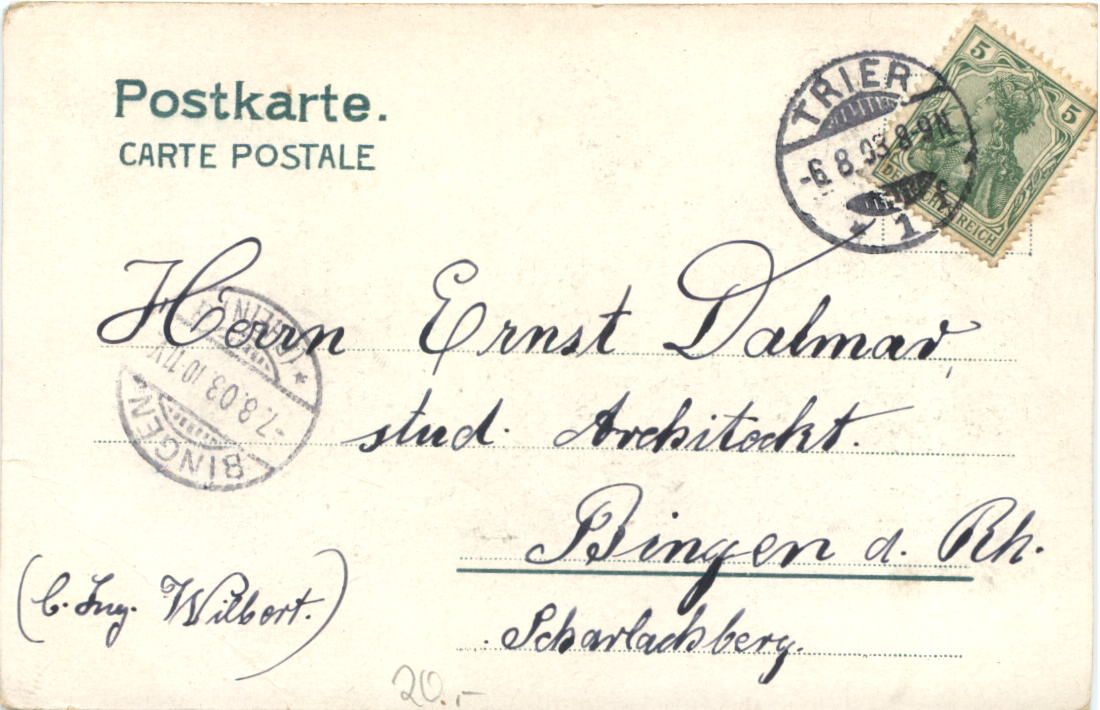 Postkarte.
CARTE POSTALE
TRIER
-6.8.03 8-9N.
* 1 *
5
5
DEUTSCHES REICH
Herrn Ernst Dalmar,
stud. Architeckt.
Bingen d. Rh.
Scharlachsberg.
(b. Ing. Wilbert.)
BINGEN
-7.8.03.10-11V.
*(RHEIN)*
20.-